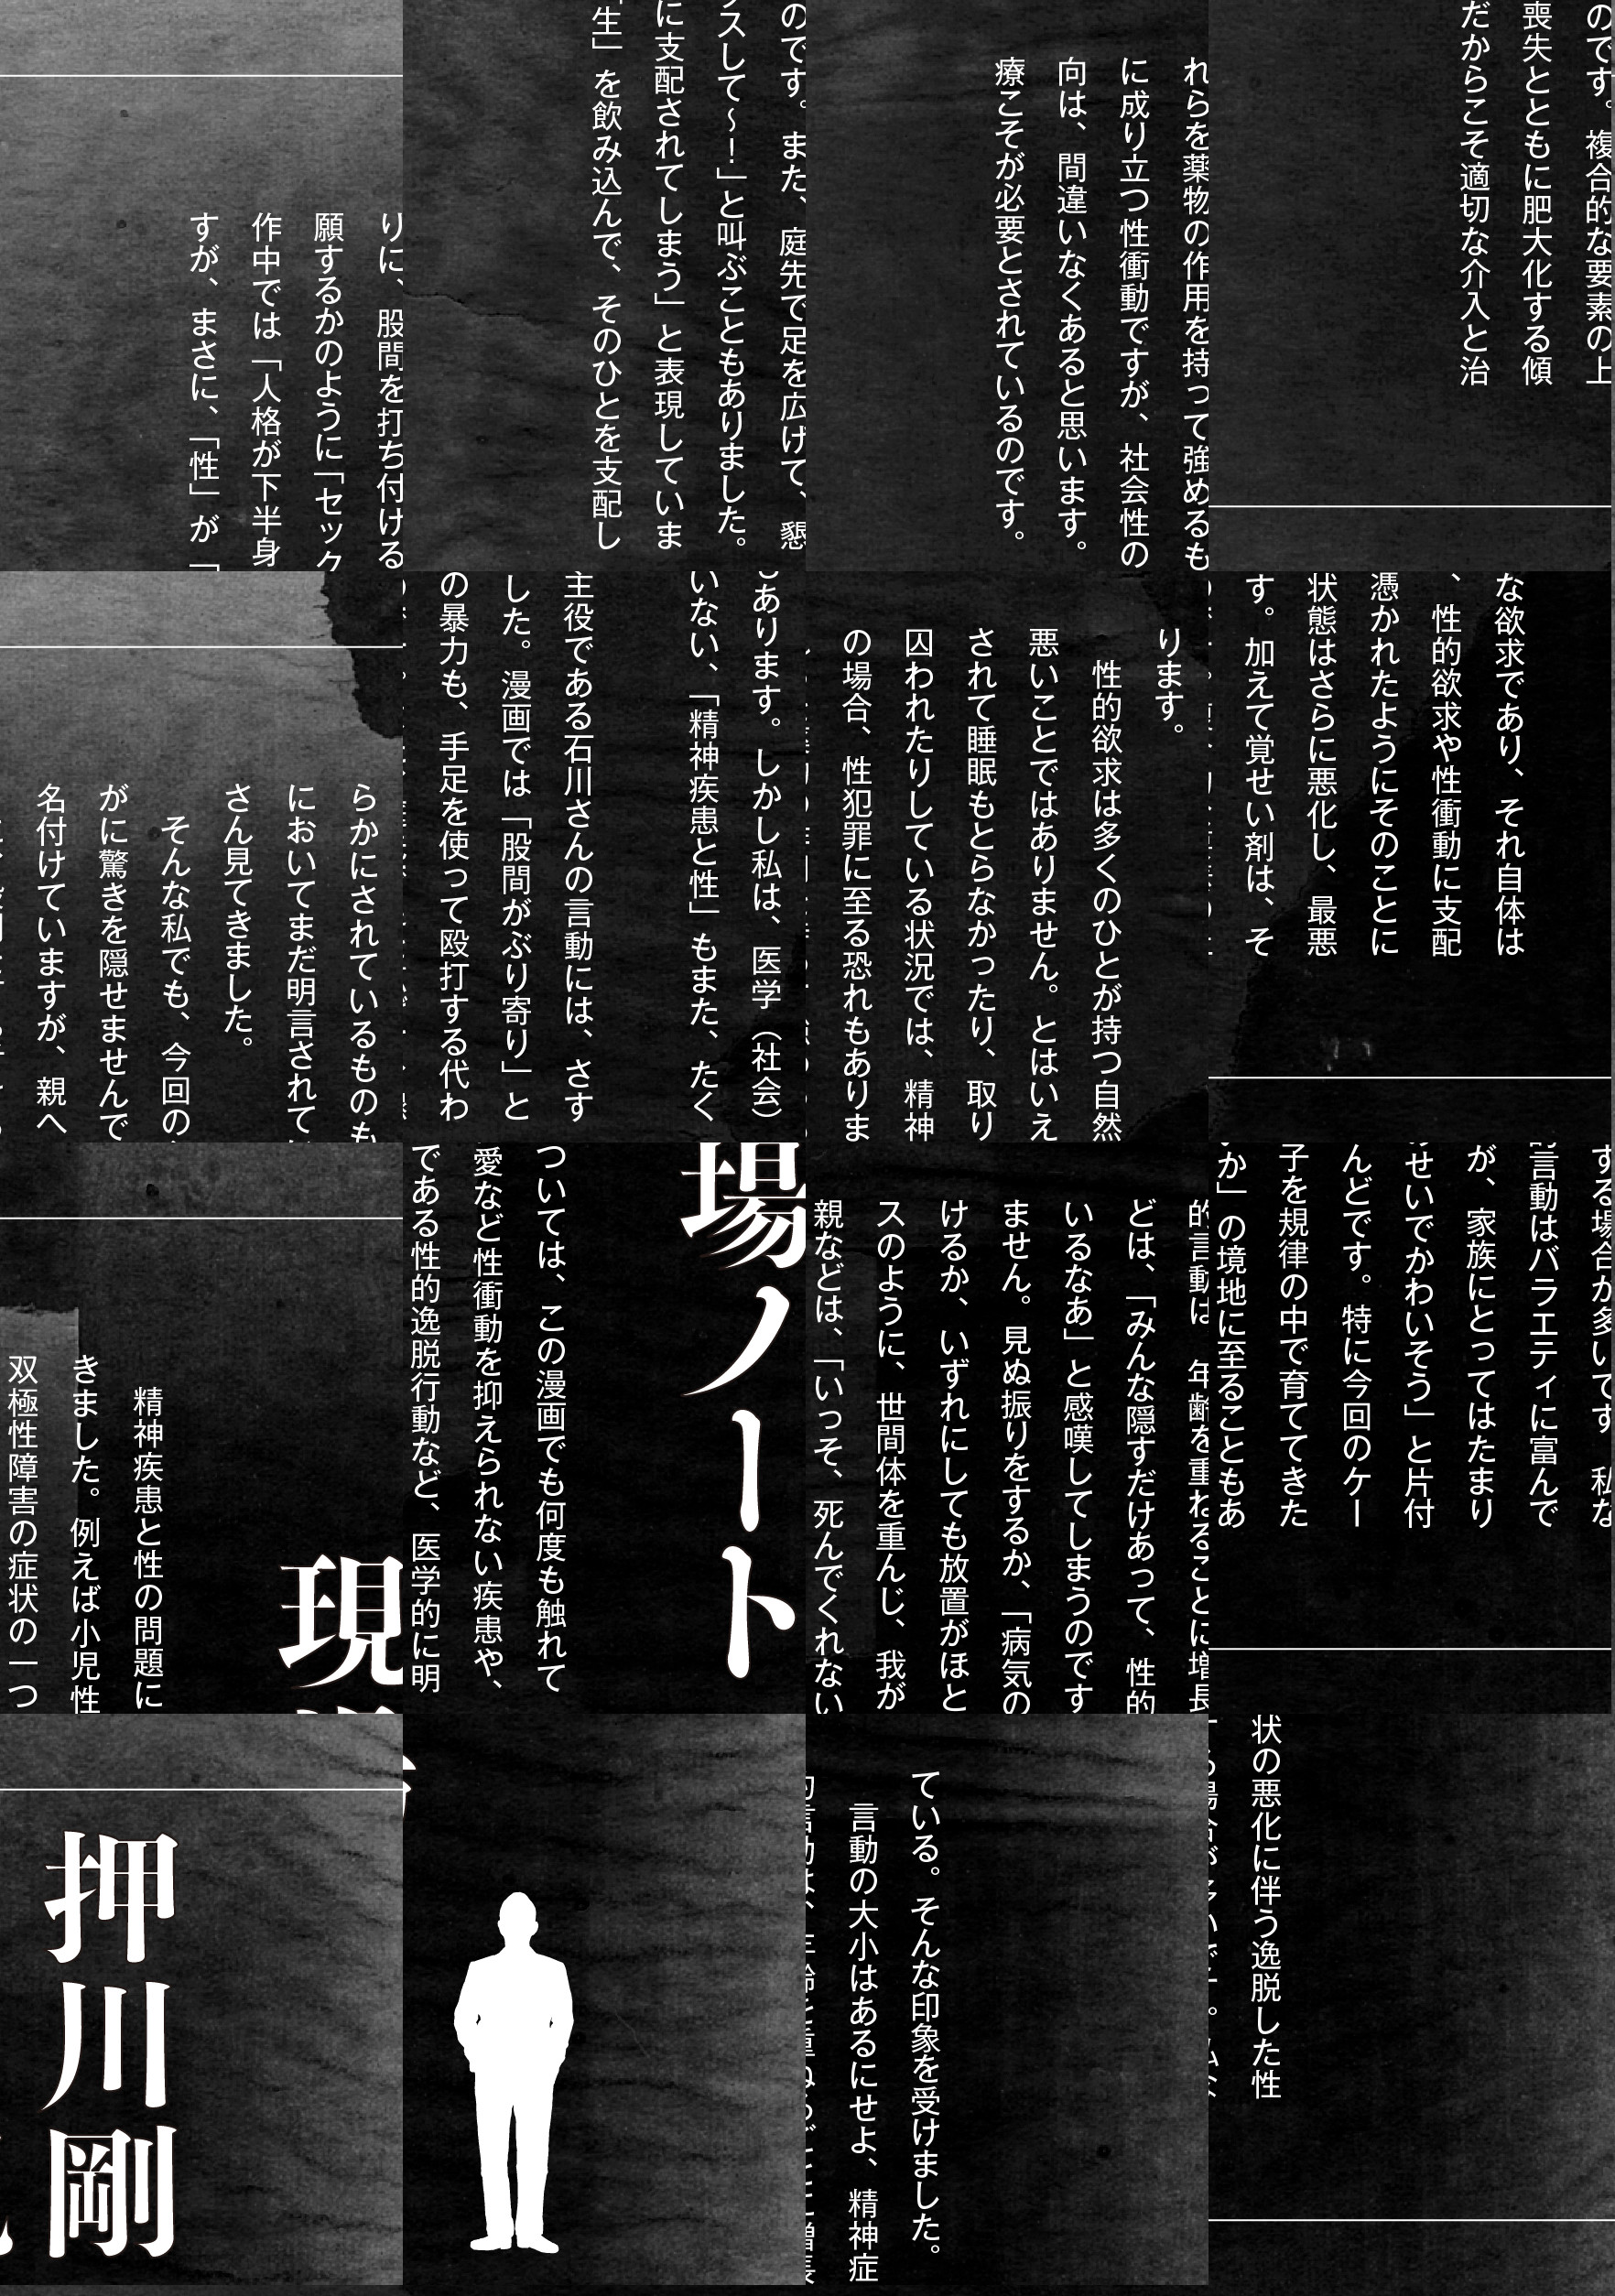 りに、股間を打ち付ける
願するかのように「セック
作中では「人格が下半身
すが、まさに、「性」が「
のです。また、庭先で足を広げて、懇
スして〜！」と叫ぶこともありました。
に支配されてしまう」と表現していま
生」を飲み込んで、そのひとを支配し
れらを薬物の作用を持って強めるも
に成り立つ性衝動ですが、社会性の
向は、間違いなくあると思います。
療こそが必要とされているのです。
のです。複合的な要素の上
喪失とともに肥大化する傾
だからこそ適切な介入と治
らかにされているものも
においてまだ明言されて
さん見てきました。
そんな私でも、今回の
がに驚きを隠せませんで
名付けていますが、親へ
あります。しかし私は、医学（社会）
いない、「精神疾患と性」もまた、たく
主役である石川さんの言動には、さす
した。漫画では「股間がぶり寄り」と
の暴力も、手足を使って殴打する代わ
ります。
性的欲求は多くのひとが持つ自然
悪いことではありません。とはいえ
されて睡眠もとらなかったり、取り
囚われたりしている状況では、精神
の場合、性犯罪に至る恐れもありま
な欲求であり、それ自体は
、性的欲求や性衝動に支配
憑かれたようにそのことに
状態はさらに悪化し、最悪
す。加えて覚せい剤は、そ
現
精神疾患と性の問題に
きました。例えば小児性
双極性障害の症状の一つ
場ノート
ついては、この漫画でも何度も触れて
愛など性衝動を抑えられない疾患や、
である性的逸脱行動など、医学的に明
的言動は、年齢を重ねるごとに増長
どは、「みんな隠すだけあって、性的
いるなあ」と感嘆してしまうのです
ません。見ぬ振りをするか、「病気の
けるか、いずれにしても放置がほと
スのように、世間体を重んじ、我が
親などは、「いっそ、死んでくれない
する場合が多いです。私な
言動はバラエティに富んで
が、家族にとってはたまり
せいでかわいそう」と片付
んどです。特に今回のケー
子を規律の中で育ててきた
か」の境地に至ることもあ
押川剛
ている。そんな印象を受けました。
言動の大小はあるにせよ、精神症
状の悪化に伴う逸脱した性